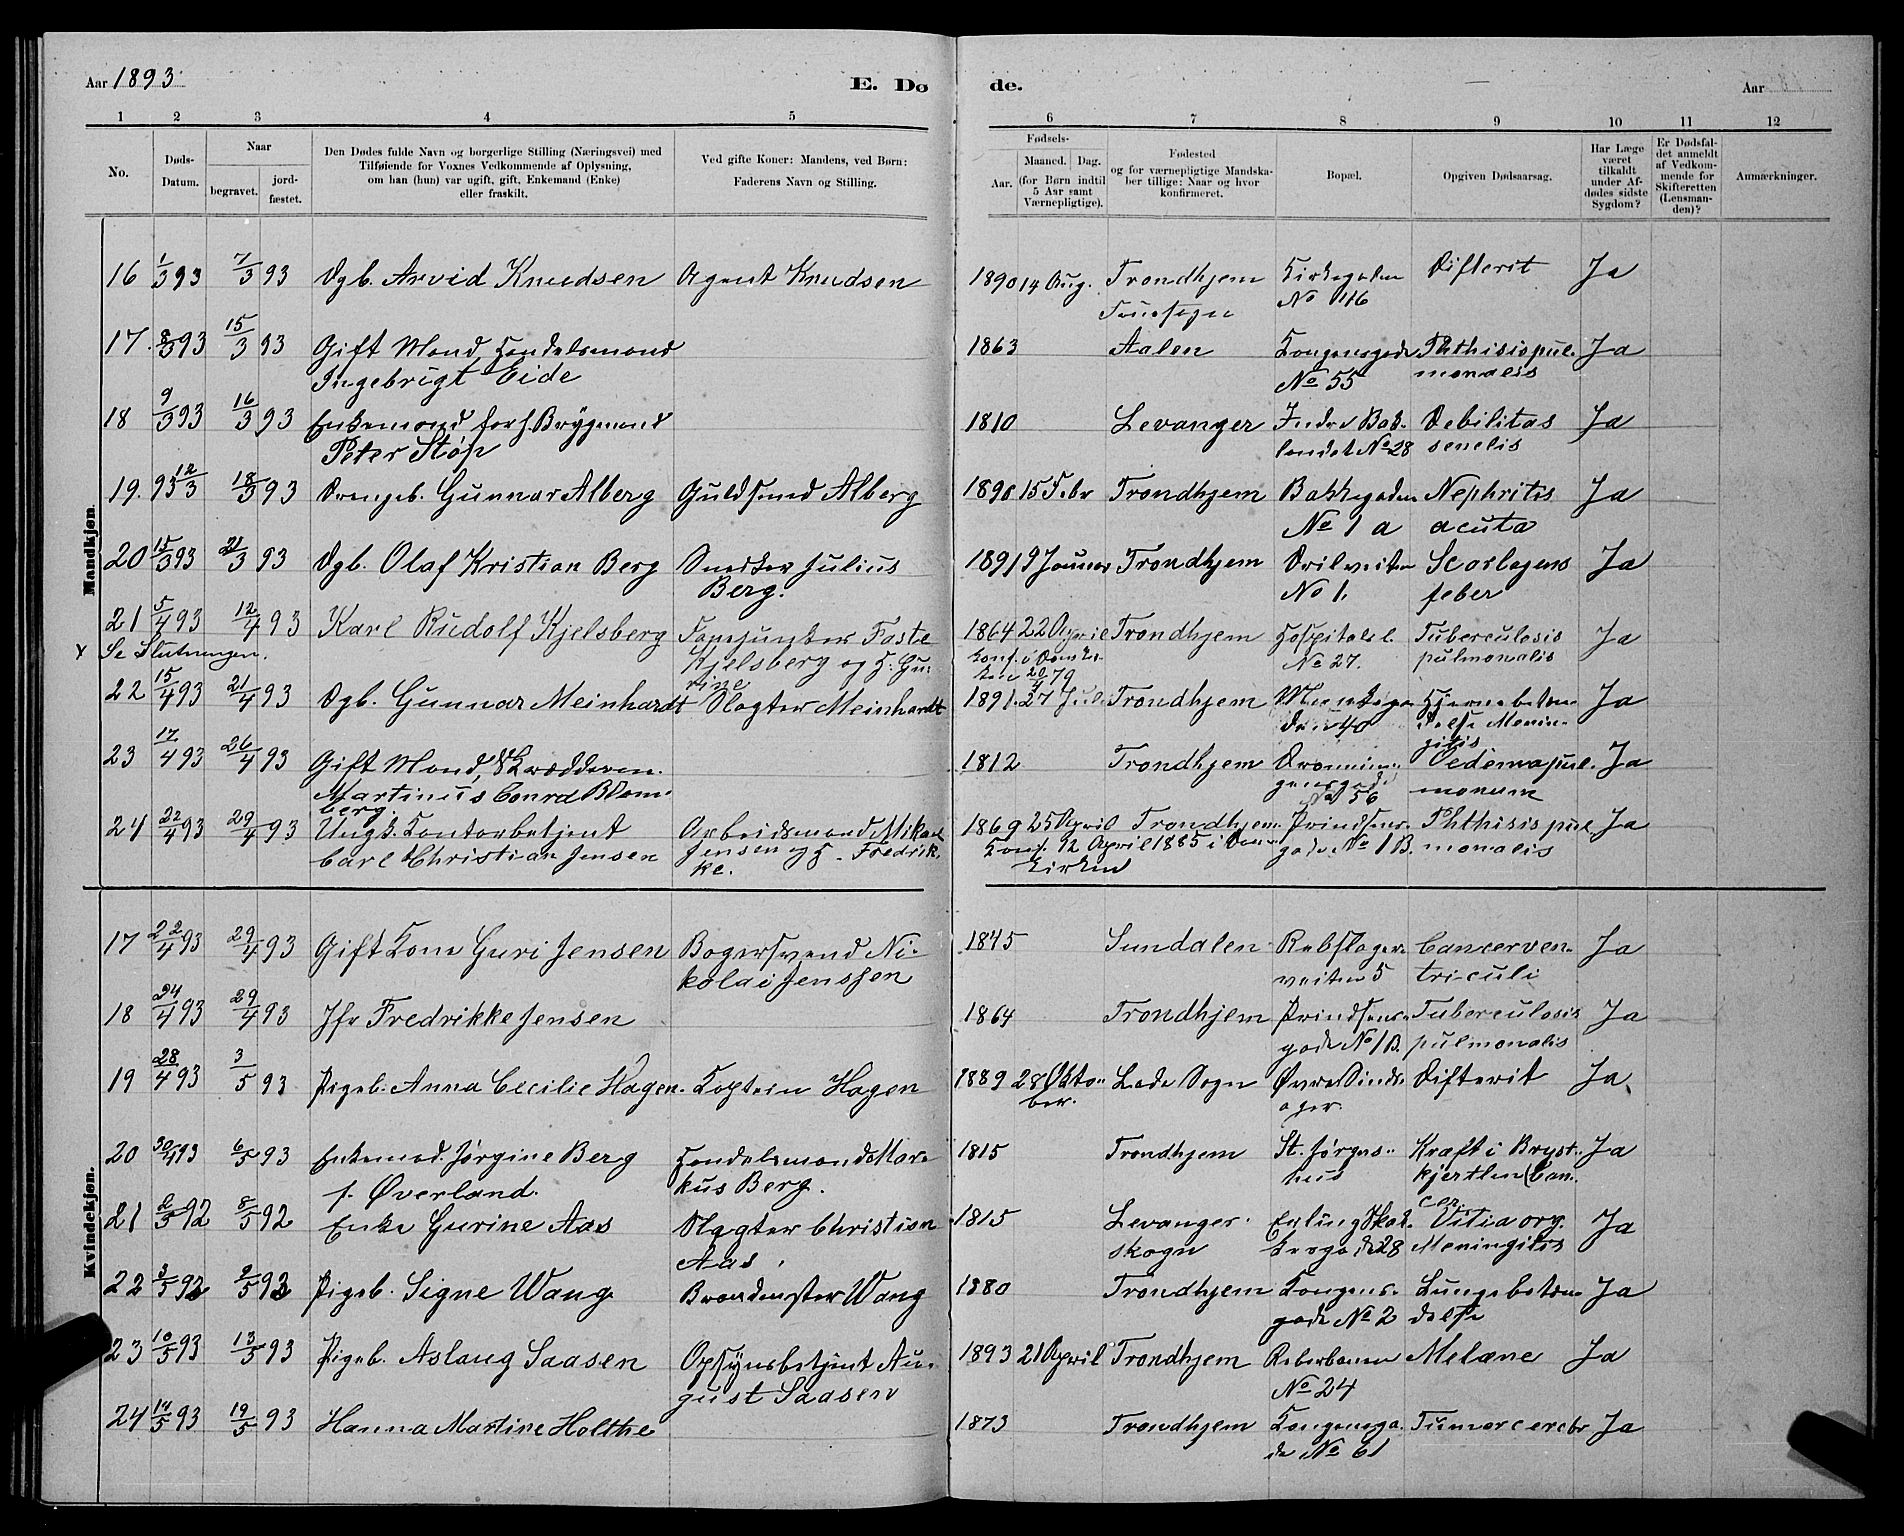 Aar 1893. E. Dø de. Aar
1 2 3 4 5 6 7 8 9 10 11 12
No. Døds-Datum. Naar begravet. jord-fæstet. Den Dødes fulde Navn og borgerlige Stilling (Næringsvei) med Tilføiende for Voxnes Vedkommende af Oplysning, om han (hun) var ugift, gift, Enkemand (Enke) eller fraskilt. Ved gifte Koner: Mandens, ved Børn: Faderens Navn og Stilling. Fødsels- Aar. Maaned. Dag. (for Børn indtil 5 Aar samt Værnepligtige). Fødested og for værnepligtige Mandskaber tillige: Naar og hvor konfirmeret. Bopæl. Opgiven Dødsaarsag. Har Læge været tilkaldt under Afdødes sidste Sygdom? Er Dødsfaldet anmeldt af Vedkommende for Skifteretten (Lensmanden)? Anmærkninger.
Mandkjøn.
16 1/3 93 7/3 93 Dgb. Arvid Knudsen Agent Knudsen 1890 14 Aug. Trondhjem Kirkegaden Difterit Ja
No 46
17. 8/3 93 15/3 93 Gift Mand, Handelsmand 1863 Aalen Kongensgade Phthisis pul- Ja
Ingebrigt Eide No 55 monalis
18 9/3 93 16/3 93 Enkemand forh. Brygmand 1810 Levanger Indre Bak- Debilitas Ja
Peter Støp landet No 28 senelis
19. 93 12/3 18/3 93 Drengeb. Gunnar Alberg Guldsmed Alberg 1890 15 Febr Trondhjem Bakkegaden Nephritis Ja
No 1 a acuta
20 15/3 93 21/3 93 Dgb. Olaf Kristian Berg Snedker Julius 1891 9 Januar Trondhjem No 1. Scarlagens Ja
Berg. feber
21 5/4 93 12/4 93 Karl Rudolf Kjelsberg Faste 1864 22 April Trondhjem Hospitalsl. Tuberculosis Ja
Se Slutningen. Kjelsberg og H. Gu- Konf. i Domkir- No 27. pulmonalis
rine ken 20/4 79
22 15/4 93 21/4 93 Dgb. Gunnar Meinhardt Slagter Meinhardt 1891. 27 Juli Trondhjem Munkega- Hjernebetæn- Ja
den 40 delse Menin-
gitis
23 17/4 93 26/4 93 Gift Mand, Skrædderen 1812 Trondhjem Dronnin- Oedema pul- Ja
Martinus Conrd Blom- gensgade monum
berg. No 56
24 22/4 93 29/4 93 Ungk. Kontorbetjent Arbeidsmand Mikael 1869 25 April Trondhjem Prindsens- Phthisis pul Ja
Carl Christian Jensen Jensen og H. Fredrik- Konf. 12 April 1885 i Dom- gade No 1 B. monalis
ke. kirken
Kvindekjøn.
17 22/4 93 29/4 93 Gift Kone Guri Jensen Bagersvend Ni- 1845 Sundalen Rebslager- Cancer ven- Ja
kolai Jenssen veiten 5 triculi
18 24/4 93 29/4 93 Jfr Fredrikke Jensen 1864 Trondhjem Prindsens- Tuberculosis Ja
gade No 1 B. pulmonalis
19 28/4 93 3/5 93 Pigeb. Anna Cecilie Hagen. Kaptein Hagen 1889 28 Okto- Lade Sogn Øvre Difterit Ja
ber.
20 30/4 93 6/5 93 Enkemad. Jørgine Berg Handelsmand Mar- 1815 Trondhjem St. Jørgens- Kræft i Bryst- Ja
f. Øverland. kus Berg. hus kjertlen (Can-
cer
21 2/5 92 8/5 92 Enke Gurine Aas Slagter Christian 1815 Levanger Erling Skak- Vitia org. Ja
Aas. skogn kesgade 28 Meningitis
22 3/5 93 9/5 93 Pigeb. Signe Wang Brandmester Wang 1880 Trondhjem Kongens- Lungebetæn- Ja
gade No 2 delse
23 10/5 93 13/5 93 Pigeb. Aslaug Saasen Opsynsbetjent Au- 1893 21 April Trondhjem Reberbanen Melæne Ja
gust Saasen No 24
24 14/5 93 19/5 93 Hanna Martine Holthe 1873 Trondhjem Kongensga- Tumor cerebr Ja
de No 61